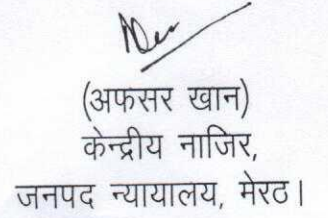 (अफसर खान)
केन्द्रीय नाजिर,
जनपद न्यायालय, मेरठ।